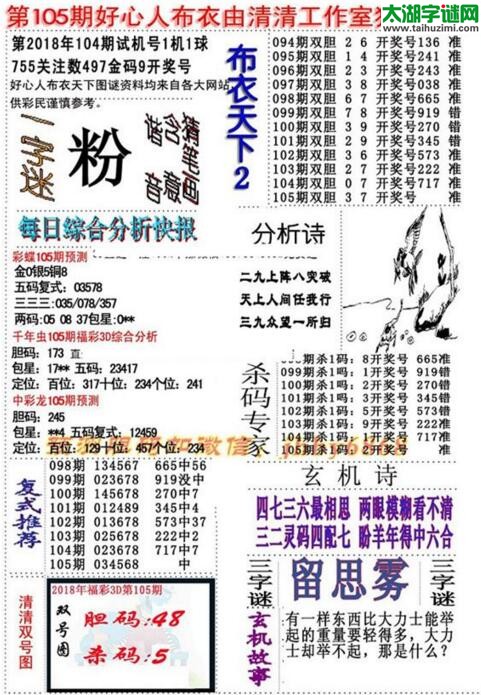 第105期好心人布衣由清清工作室
太湖字谜网
www.taihuzimi.com
第2018年104期试机号1机1球
755关注数497金码9开奖号
好心人布衣天下图谜资料均来自各大网站,
供彩民谨慎参考。
一字谜
粉
谐音
含意
猜笔画
布衣天下2
094期双胆 2 6 开奖号136 准
095期双胆 1 4 开奖号241 准
096期双胆 2 3 开奖号243 准
097期双胆 0 8 开奖号038 准
098期双胆 6 7 开奖号665 准
099期双胆 7 8 开奖号919 错
100期双胆 3 9 开奖号270 错
101期双胆 2 9 开奖号345 错
102期双胆 3 6 开奖号573 准
103期双胆 2 7 开奖号222 准
104期双胆 0 7 开奖号717 准
105期双胆 3 7 开奖号 准
每日综合分析快报
彩蝶105期预测
金0银5铜8
五码复式: 03578
三三三:035/078/357
两码:05 08 37包星:0**
千年虫105期福彩3D综合分析
胆码: 173 直
包星: 17** 五码: 23417
定位: 百位: 317十位: 234个位: 241
中彩龙105期预测
胆码: 245
包星: **4 五码复式: 12459
定位: 百位: 129十位: 457个位: 234
分析诗
二九上阵八突破
天上人间任我行
三九众望一所归
杀码专家
098期杀1码: 8开奖号 665准
099期杀1吗: 1开奖号 919错
100期杀1码: 2开奖号 270错
101期杀1码: 3开奖号 345错
102期杀1码: 6开奖号 573准
103期杀1码: 1开奖号 222准
104期杀1码: 9开奖号 717准
105期杀1码: 2开奖号 准
复式推荐
098期 134567 665中56
099期 023678 919没中
100期 145678 270中7
101期 012489 345中4
102期 013678 573中37
103期 025678 222中2
104期 023678 717中7
105期 034568 中
玄机诗
四七三六最相思 两眼模糊看不清
三二灵码四配七 盼羊年得中六合
清清双号图
2018年福彩3D第105期
双号图
胆码:48
杀码:5
三字谜
留思雾
三字谜
玄机故事
有一样东西比大力士能举
起的重量要轻得多,大力
士却举不起,那是什么?